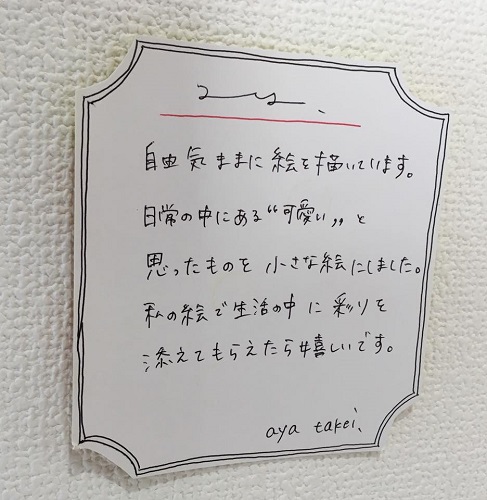 自由気ままに絵を描いています。
日常の中にある“可愛い„と
思ったものを小さな絵にしました。
私の絵で生活の中に彩りを
添えてもらえたら嬉しいです。
aya takei.